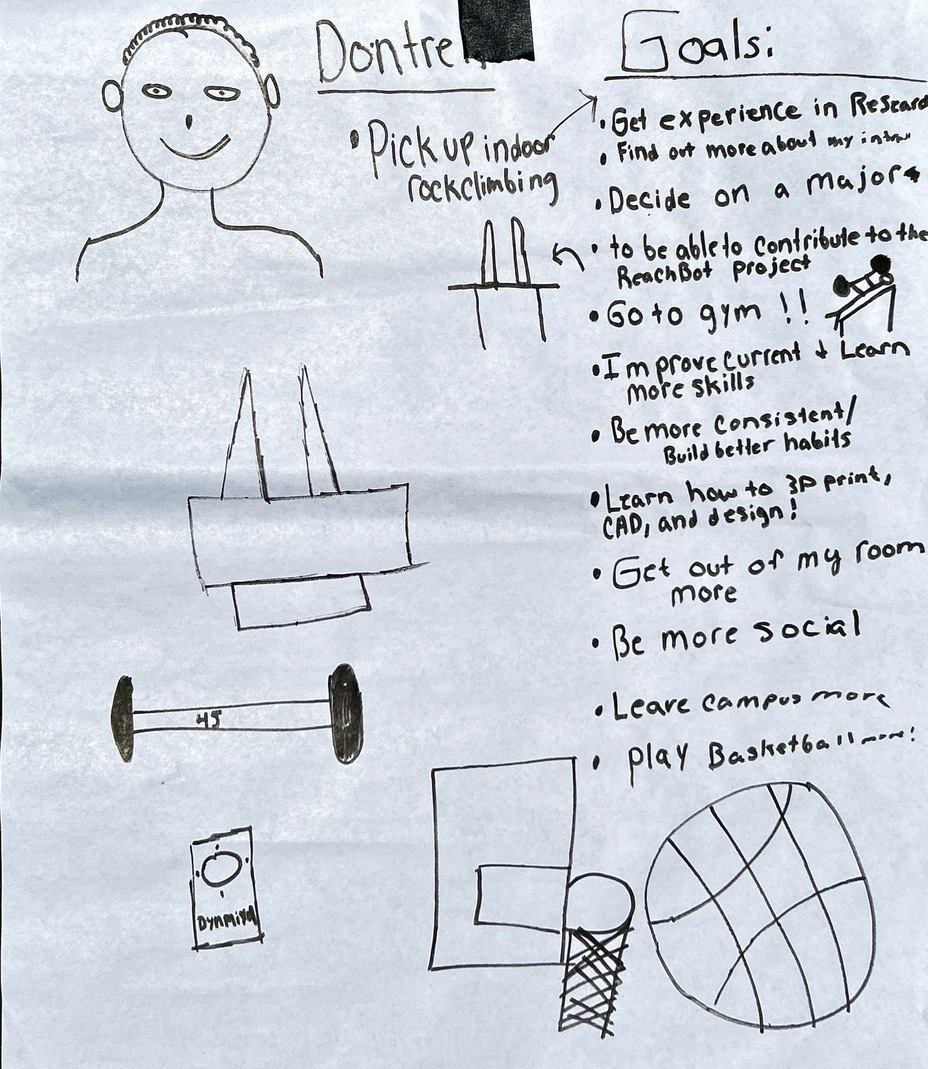 Dontre
Goals:
• Pick up indoor
rockclimbing
• Get experience in
• Find out more about my
• Decide on a major
• to be able to contribute to the
ReachBot project
• Go to gym !!
• Improve current + Learn
more skills
• Be more consistent/
Build better habits
• Learn how to 3D print,
CAD, and design!
• Get out of my room
more
• Be more social
• Leave campus more
• Play Basketball more!
45